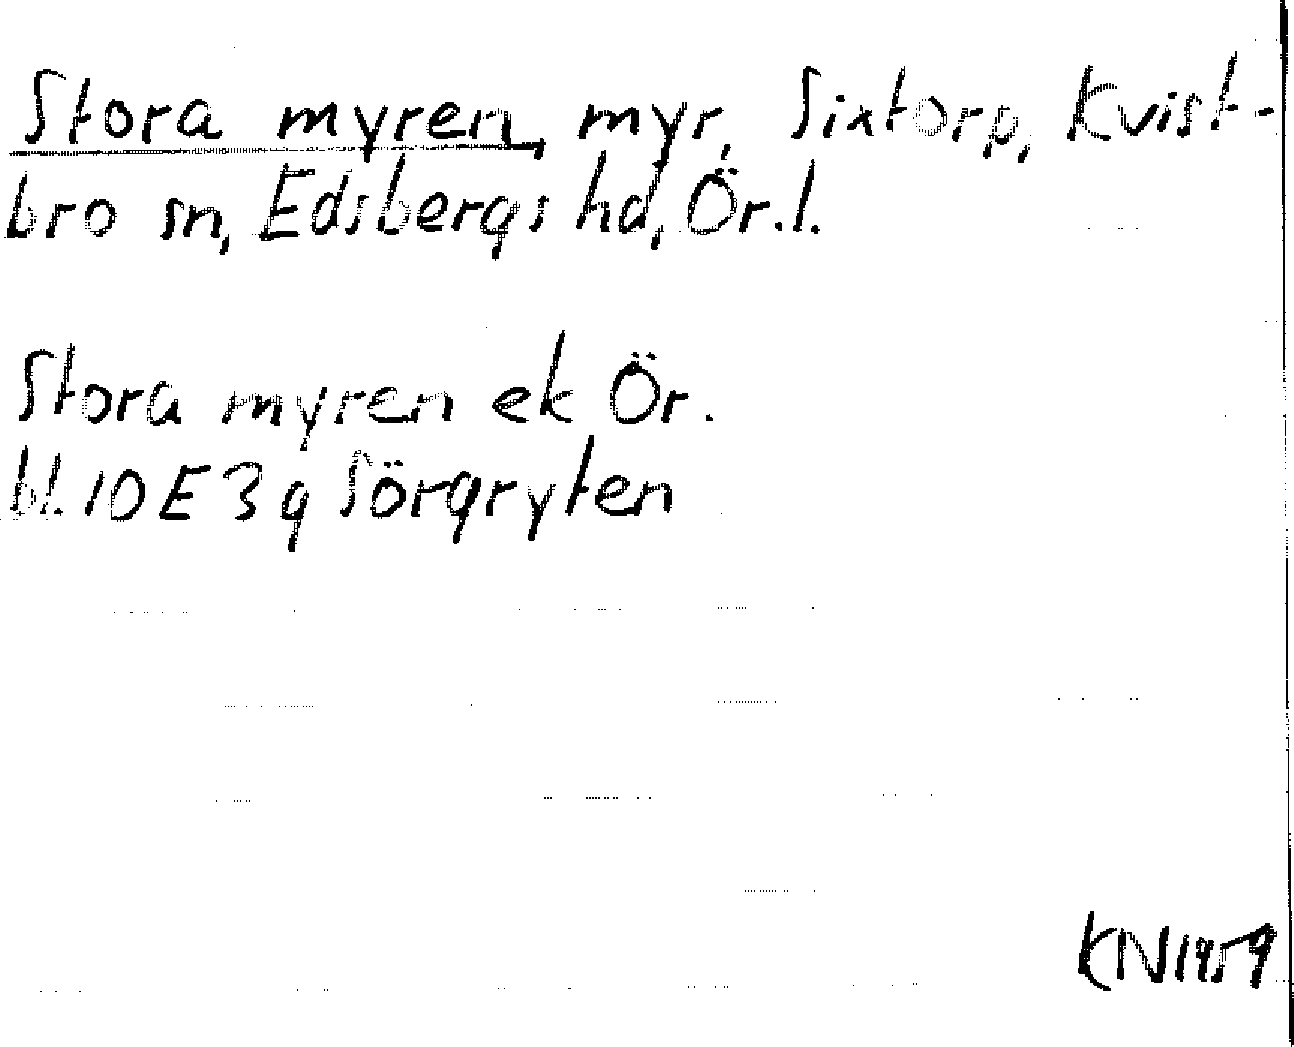 Stora myren, myr, Sixtorp, Kvist-
bro sn, Edsbergs hd, Ör.l.
Stora myren ek Ör.
bl. 10E3g Sörgryten
KN1959